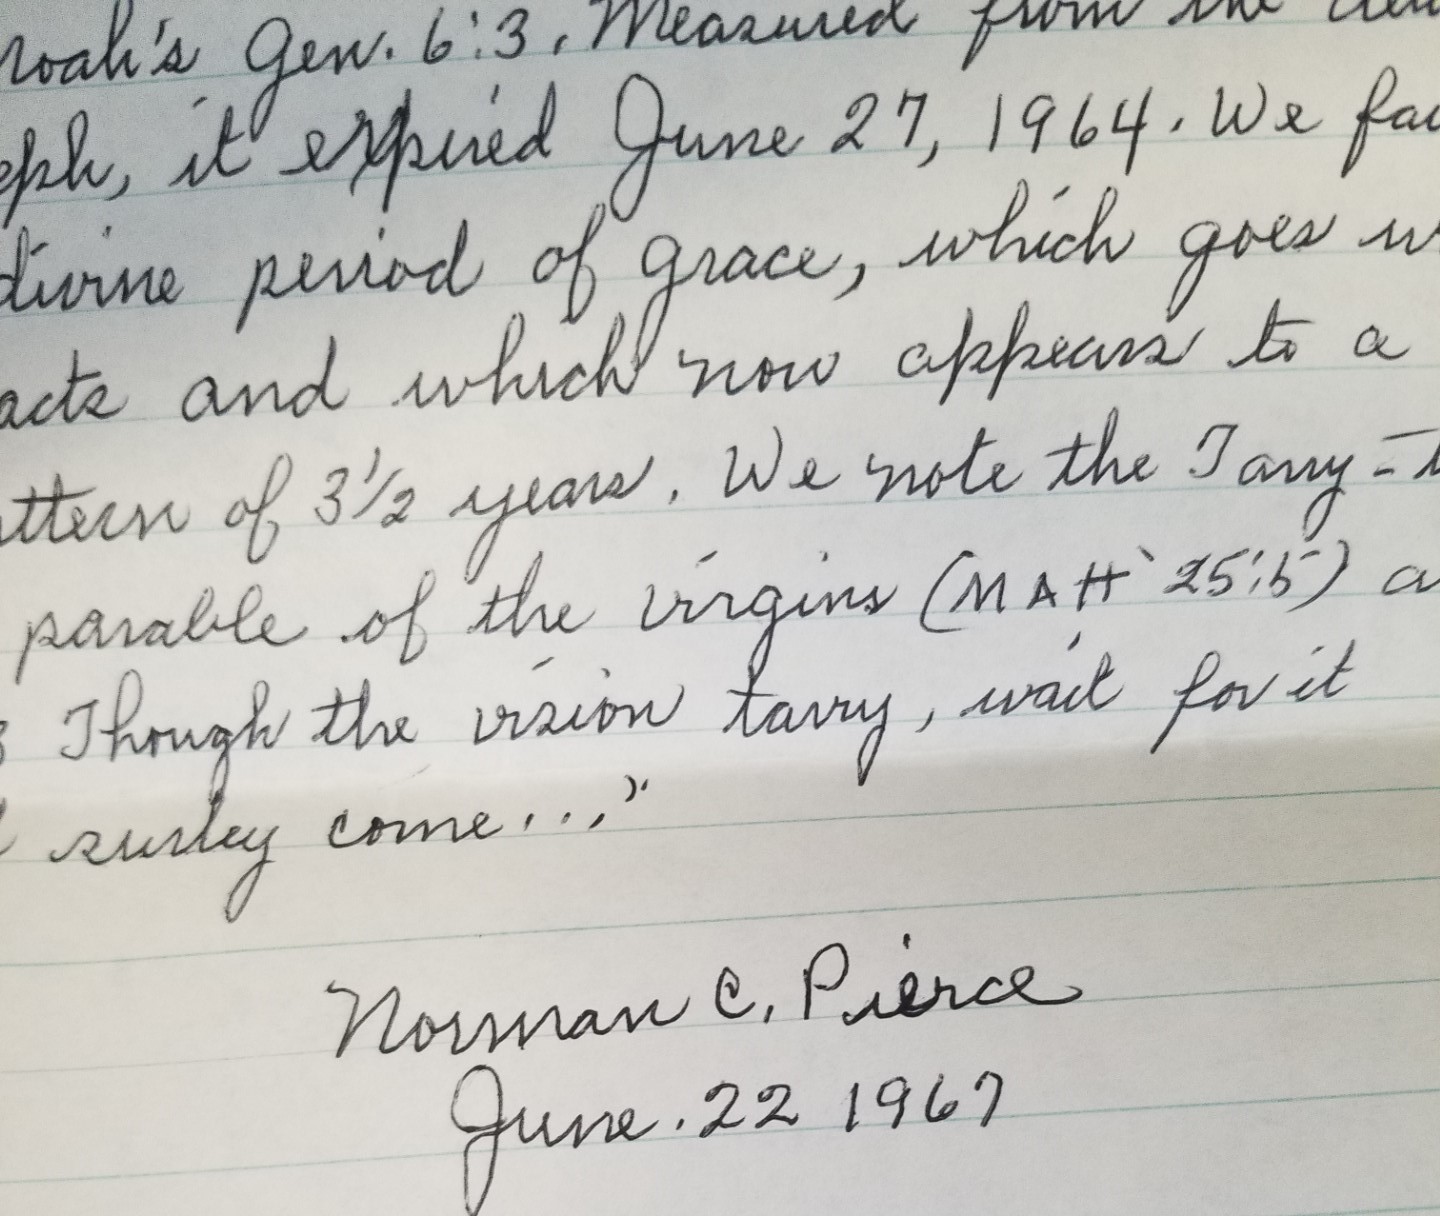 Noah's Gen. 6:3. Measured from the
it expired June 27, 1964. We
divine period of grace, which goes
and which now appears to a
of 3½ years. We note the Tarry-
parable of the virgins (MAtt 25:5)
Though the vision tarry, wait for it
surley come..."
Norman C. Pierce
June. 22 1967